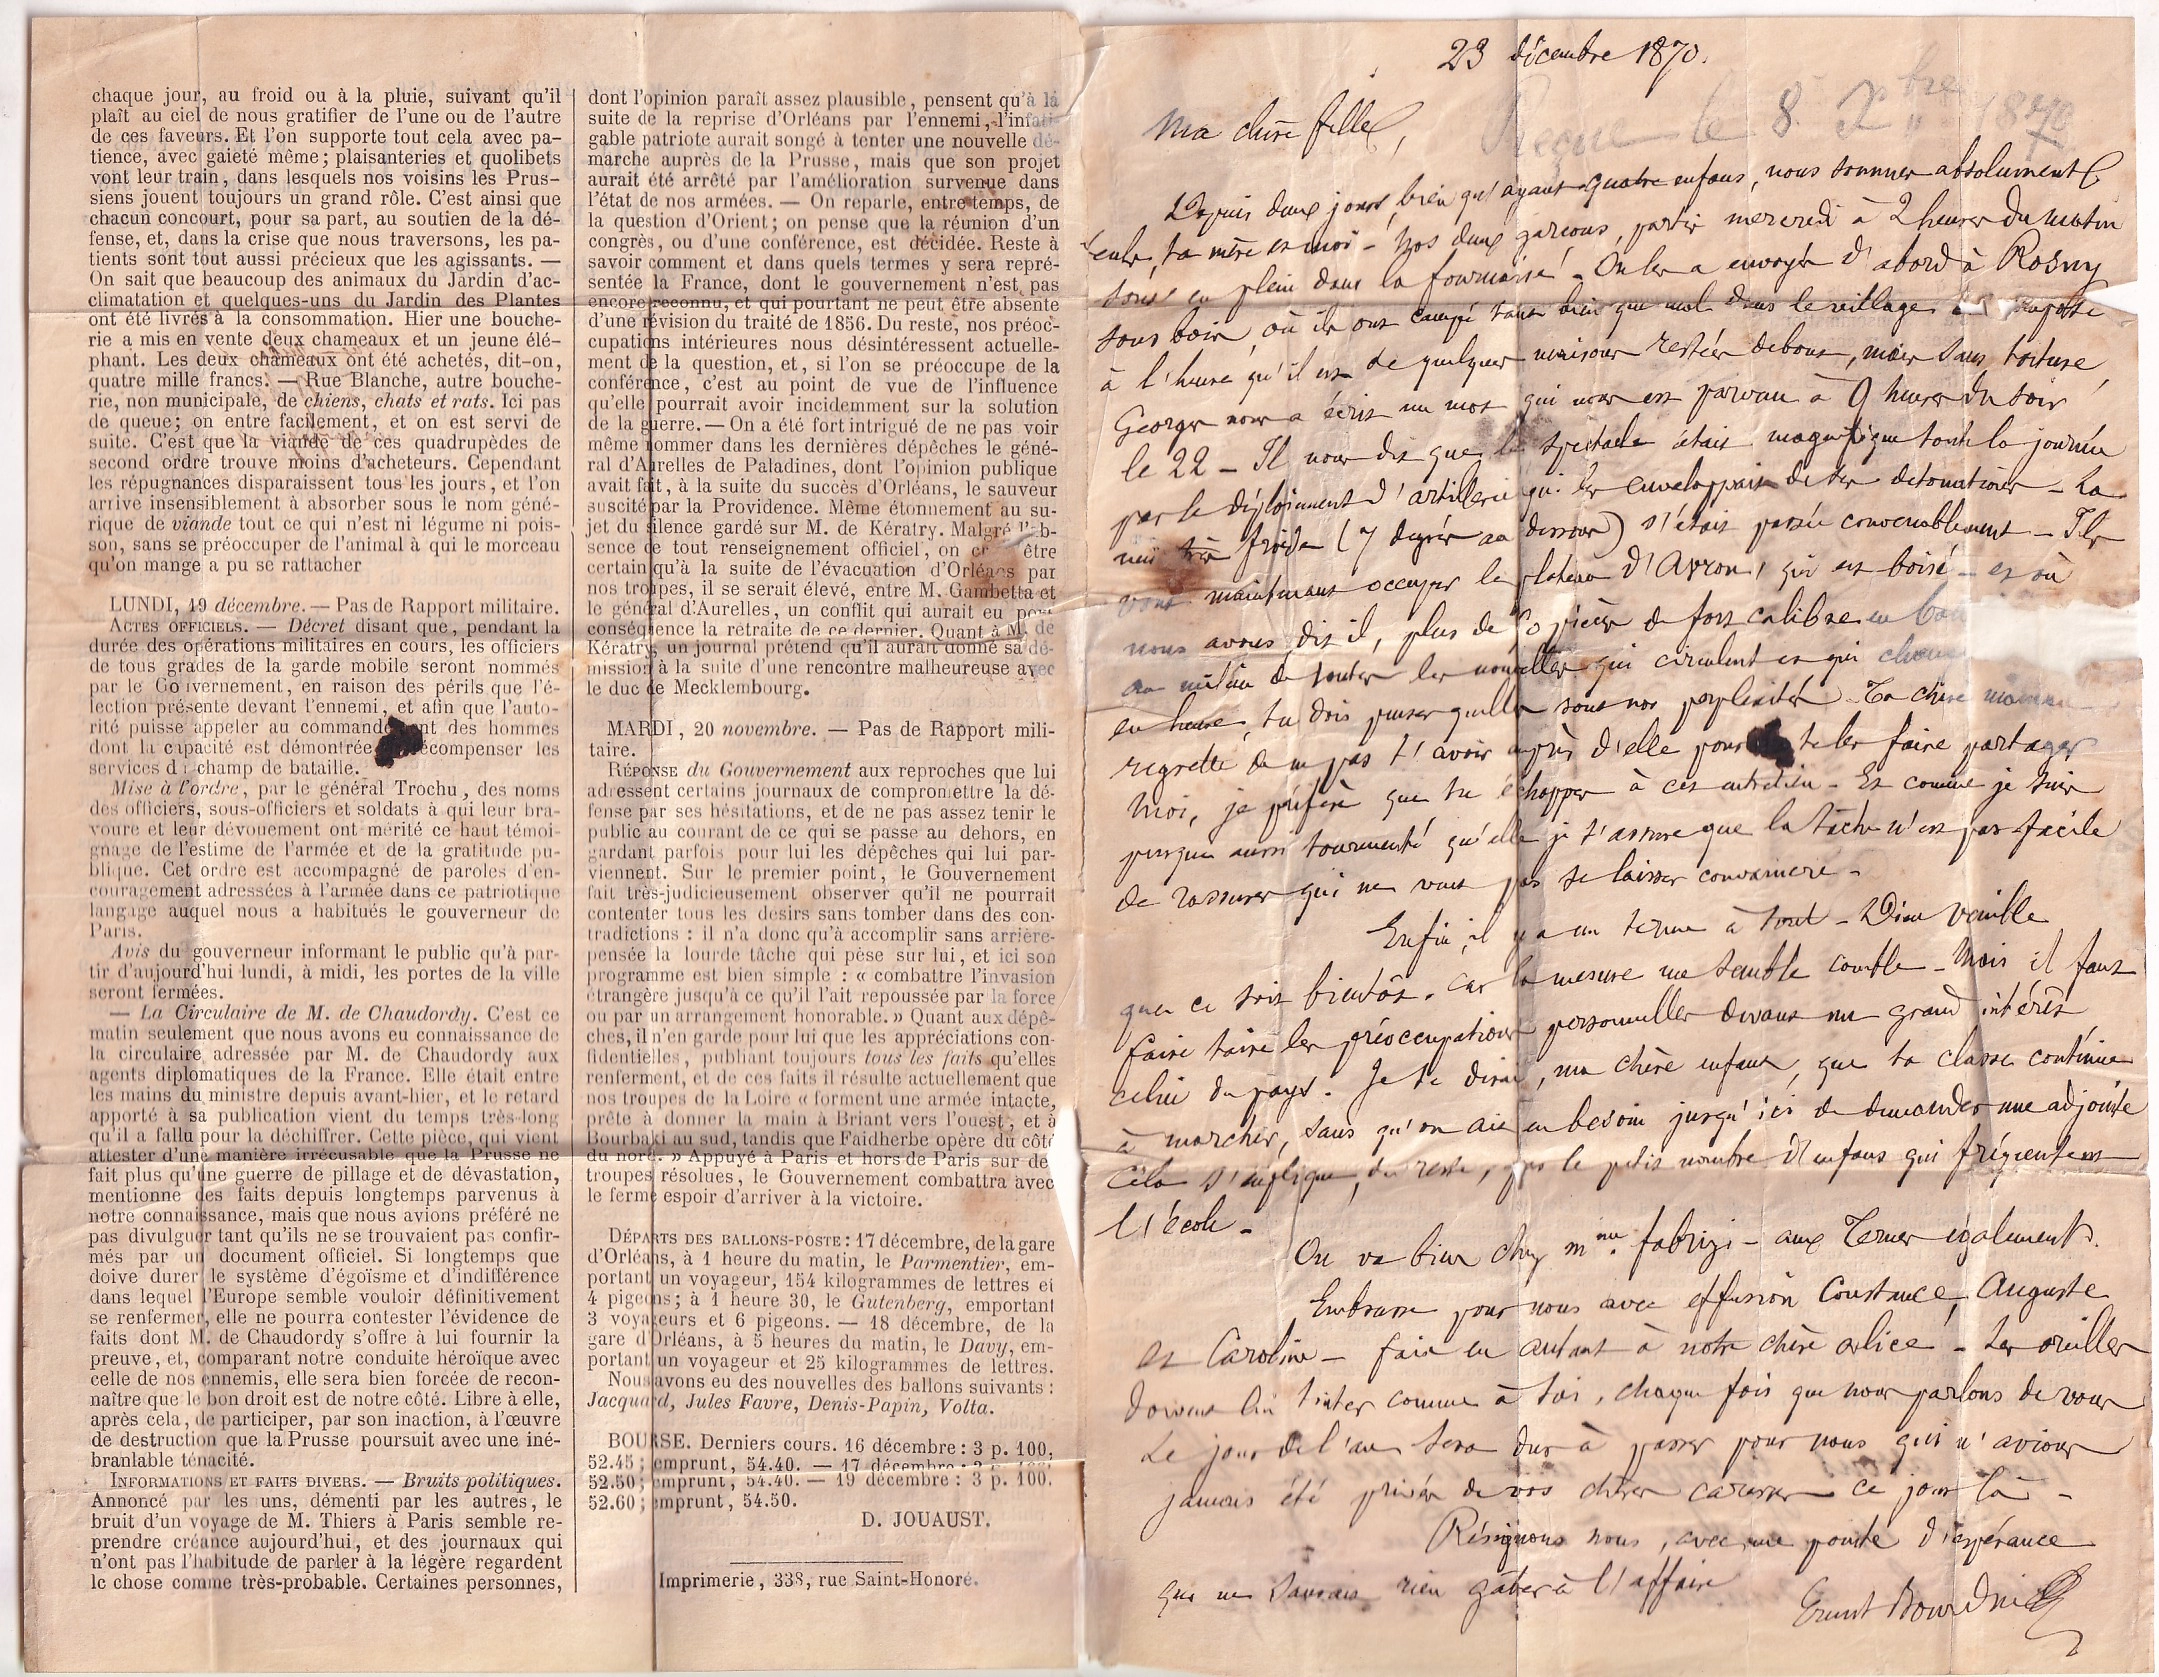 chaque jour, au froid ou à la pluie, suivant qu'il
plaît au ciel de nous gratifier de l'une ou de l'autre
de ces faveurs. Et l'on supporte tout cela avec pa-
tience, avec gaieté même; plaisanteries et quolibets
vont leur train, dans lesquels nos voisins les Prus-
siens jouent toujours un grand rôle. C'est ainsi que
chacun concourt, pour sa part, au soutien de la dé-
fense, et, dans la crise que nous traversons, les pa-
tients sont tout aussi précieux que les agissants. —
On sait que beaucoup des animaux du Jardin d'ac-
climatation et quelques-uns du Jardin des Plantes
ont été livrés à la consommation. Hier une bouche-
rie a mis en vente deux chameaux et un jeune élé-
phant. Les deux chameaux ont été achetés, dit-on,
quatre mille francs. — Rue Blanche, autre bouche-
rie, non municipale, de chiens, chats et rats. Ici pas
de queue; on entre facilement, et on est servi de
suite. C'est que la viande de ces quadrupèdes de
second ordre trouve moins d'acheteurs. Cependant
les répugnances disparaissent tous les jours, et l'on
arrive insensiblement à absorber sous le nom géné-
rique de viande tout ce qui n'est ni légume ni pois-
son, sans se préoccuper de l'animal à qui le morceau
qu'on mange a pu se rattacher
LUNDI, 19 décembre. — Pas de Rapport militaire.
ACTES OFFICIELS. — Décret disant que, pendant la
durée des opérations militaires en cours, les officiers
de tous grades de la garde mobile seront nommés
par le Gouvernement, en raison des périls que l'é-
lection présente devant l'ennemi, et afin que l'auto-
rité puisse appeler au commande nt des hommes
dont la capacité est démontrée écompenser les
services du champ de bataille.
Mise à l'ordre, par le général Trochu, des noms
des officiers, sous-officiers et soldats à qui leur bra-
voure et leur dévouement ont mérité ce haut témoi-
gnage de l'estime de l'armée et de la gratitude pu-
blique. Cet ordre est accompagné de paroles d'en-
couragement adressées à l'armée dans ce patriotique
langage auquel nous a habitués le gouverneur de
Paris.
Avis du gouverneur informant le public qu'à par-
tir d'aujourd'hui lundi, à midi, les portes de la ville
seront fermées.
— La Circulaire de M. de Chaudordy. C'est ce
matin seulement que nous avons eu connaissance de
la circulaire adressée par M. de Chaudordy aux
agents diplomatiques de la France. Elle était entre
les mains du ministre depuis avant-hier, et le retard
apporté à sa publication vient du temps très-long
qu'il a fallu pour la déchiffrer. Cette pièce, qui vient
attester d'une manière irrécusable que la Prusse ne
fait plus qu'une guerre de pillage et de dévastation,
mentionne des faits depuis longtemps parvenus à
notre connaissance, mais que nous avions préféré ne
pas divulguer tant qu'ils ne se trouvaient pas confir-
més par un document officiel. Si longtemps que
doive durer le système d'égoïsme et d'indifférence
dans lequel l'Europe semble vouloir définitivement
se renfermer, elle ne pourra contester l'évidence de
faits dont M. de Chaudordy s'offre à lui fournir la
preuve, et, comparant notre conduite héroïque avec
celle de nos ennemis, elle sera bien forcée de recon-
naître que le bon droit est de notre côté. Libre à elle,
après cela, de participer, par son inaction, à l'œuvre
de destruction que la Prusse poursuit avec une iné-
branlable ténacité.
INFORMATIONS ET FAITS DIVERS. — Bruits politiques.
Annoncé par les uns, démenti par les autres, le
bruit d'un voyage de M. Thiers à Paris semble re-
prendre créance aujourd'hui, et des journaux qui
n'ont pas l'habitude de parler à la légère regardent
le chose comme très-probable. Certaines personnes,
dont l'opinion paraît assez plausible, pensent qu'à la
suite de la reprise d'Orléans par l'ennemi, l'infati-
gable patriote aurait songé à tenter une nouvelle dé-
marche auprès de la Prusse, mais que son projet
aurait été arrêté par l'amélioration survenue dans
l'état de nos armées. — On reparle, entre temps, de
la question d'Orient; on pense que la réunion d'un
congrès, ou d'une conférence, est décidée. Reste à
savoir comment et dans quels termes y sera repré-
sentée la France, dont le gouvernement n'est pas
encore reconnu, et qui pourtant ne peut être absente
d'une révision du traité de 1856. Du reste, nos préoc-
cupations intérieures nous désintéressent actuelle-
ment de la question, et, si l'on se préoccupe de la
conférence, c'est au point de vue de l'influence
qu'elle pourrait avoir incidemment sur la solution
de la guerre. — On a été fort intrigué de ne pas voir
même nommer dans les dernières dépêches le géné-
ral d'Aurelles de Paladines, dont l'opinion publique
avait fait, à la suite du succès d'Orléans, le sauveur
suscité par la Providence. Même étonnement au su-
jet du silence gardé sur M. de Kératry. Malgré l'ab-
sence de tout renseignement officiel, on cr être
certain qu'à la suite de l'évacuation d'Orléans par
nos troupes, il se serait élevé, entre M. Gambetta et
le général d'Aurelles, un conflit qui aurait eu pour
conséquence la retraite de ce dernier. Quant à M. de
Kératry, un journal prétend qu'il aurait donné sa dé-
mission à la suite d'une rencontre malheureuse avec
le duc de Mecklembourg.
MARDI, 20 novembre. — Pas de Rapport mili-
taire.
RÉPONSE du Gouvernement aux reproches que lui
adressent certains journaux de compromettre la dé-
fense par ses hésitations, et de ne pas assez tenir le
public au courant de ce qui se passe au dehors, en
gardant parfois pour lui les dépêches qui lui par-
viennent. Sur le premier point, le Gouvernement
fait très-judicieusement observer qu'il ne pourrait
contenter tous les désirs sans tomber dans des con-
tradictions : il n'a donc qu'à accomplir sans arrière-
pensée la lourde tâche qui pèse sur lui, et ici son
programme est bien simple : « combattre l'invasion
étrangère jusqu'à ce qu'il l'ait repoussée par la force
ou par un arrangement honorable. » Quant aux dépê-
ches, il n'en garde pour lui que les appréciations con-
fidentielles, publiant toujours tous les faits qu'elles
renferment, et de ces faits il résulte actuellement que
nos troupes de la Loire « forment une armée intacte,
prête à donner la main à Briant vers l'ouest, et à
Bourbaki au sud, tandis que Faidherbe opère du côté
du nord. » Appuyé à Paris et hors de Paris sur de
troupes résolues, le Gouvernement combattra avec
le ferme espoir d'arriver à la victoire.
DÉPARTS DES BALLONS-POSTE: 17 décembre, de la gare
d'Orléans, à 1 heure du matin, le Parmentier, em-
portant un voyageur, 154 kilogrammes de lettres et
4 pigeons; à 1 heure 30, le Gutenberg, emportant
3 voyageurs et 6 pigeons. — 18 décembre, de la
gare d'Orléans, à 5 heures du matin, le Davy, em-
portant un voyageur et 25 kilogrammes de lettres.
Nous avons eu des nouvelles des ballons suivants :
Jacquard, Jules Favre, Denis-Papin, Volta.
BOURSE. Derniers cours. 16 décembre: 3 p. 100,
52.45; emprunt, 54.40. — 17 décembre : 3 p. 100,
52.50; emprunt, 54.40. — 19 décembre : 3 p. 100.
52.60; emprunt, 54.50.
D. JOUAUST.
Imprimerie, 338, rue Saint-Honoré.
23 décembre 1870.
Reçue le 8 Xbre 1870
Ma chère fille,
Depuis deux jours, bien qu'ayant quatre enfans, nous sommes absolument
seuls, ta mère et moi - Nos deux garçons, partis mercredi à 2 heures du matin
sont en plein dans la fournaise ! - On les a envoyés d'abord à Rosny
sous bois, où ils ont campé tant bien que mal dans le village
à l'heure qu'il est de quelques maisons restées debout, mais sans toiture,
Georges nous a écrit un mot qui nous est parvenu à 9 heures du soir
le 22 - Il nous dit que le spectacle était magnifique toute la journée
par le déploiement d'artillerie qui les enveloppait de ses détonations - La
nuit très froide (7 degrés au dessous) s'était passée convenablement - Ils
vont maintenant occuper le plateau d'Avron, qui est boisé - et où
nous avons, dit il, plus de pièces de fort calibre en
au milieu de toutes les nouvelles qui circulent et qui
en heure, tu dois penser quelles sont nos perplexités - Ta chère maman
regrette de ne pas t'avoir auprès d'elle pour te les faire partager
Moi, je préfère que tu échappes à ces entretiens - Et comme je suis
presque aussi tourmenté qu'elle je t'assure que la tâche n'est pas facile
de rassurer qui ne veut pas se laisser convaincre -
Enfin, il y a un terme à tout - Dieu veuille
que ce soit bientôt, car la mesure me semble comble - Mais il faut
faire taire les préoccupations personnelles devant un grand intérêt
celui du pays. Je te dirai, ma chère enfant, que ta classe continue
à marcher, sans qu'on ait eu besoin jusqu'ici de demander une adjointe
Cela s'explique, du reste, par le petit nombre d'enfans qui fréquentent
l'école -
On va bien chez Mme. Fabrizi - aux Ternes également.
Embrasse pour nous avec effusion Constance, Auguste
et Caroline - fais en autant à notre chère Alice - Les oreilles
doivent lui tinter comme à toi, chaque fois que nous parlons de vous
Le jour de l'an sera dur à passer pour nous qui n'avions
jamais été privés de vos chères caresses ce jour là -
Résignons nous, avec une pointe d'espérance
qui ne saurait rien gâter à l'affaire